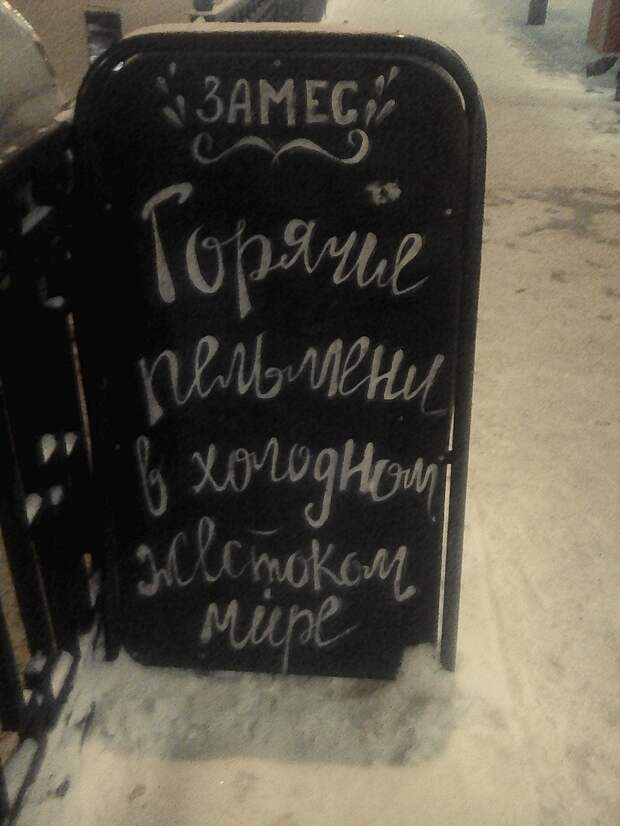 ЗАМЕС
Горячие
пельмени
в холодном
жестоком
мире